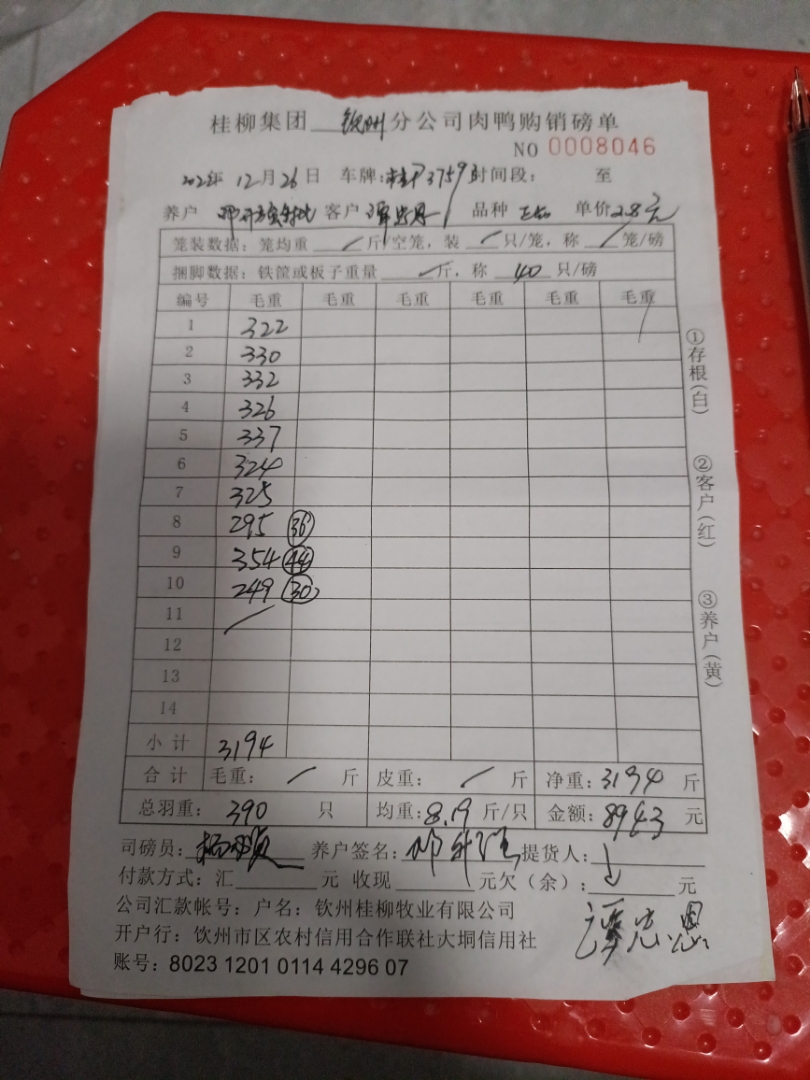 桂柳集团 钦州 分公司肉鸭购销磅单
NO 0008046
12月26日 车牌: 3759 时间段: 至
养户 客户 谭忠恩 品种 单价 2.8元
笼装数据: 笼均重 / 斤/空笼, 装 / 只/笼, 称 / 笼/磅
捆脚数据: 铁筐或板子重量 / 斤, 称 40 只/磅
编号 毛重 毛重 毛重 毛重 毛重 毛重
1 322
2 330
3 332
4 326
5 337
6 324
7 325
8 295 36
9 354 44
10 249 30
11 /
12
13
14
小计 3194
合计 毛重: / 斤 皮重: / 斤 净重: 3194 斤
总羽重: 390 只 均重: 8.19 斤/只 金额: 8943 元
司磅员: 养户签名: 提货人:
付款方式: 汇 元 收现 元欠(余): 元
谭忠恩
公司汇款帐号: 户名: 钦州桂柳牧业有限公司
开户行: 钦州市区农村信用合作联社大垌信用社
账号: 8023 1201 0114 4296 07
①存根(白)
②客户(红)
③养户(黄)